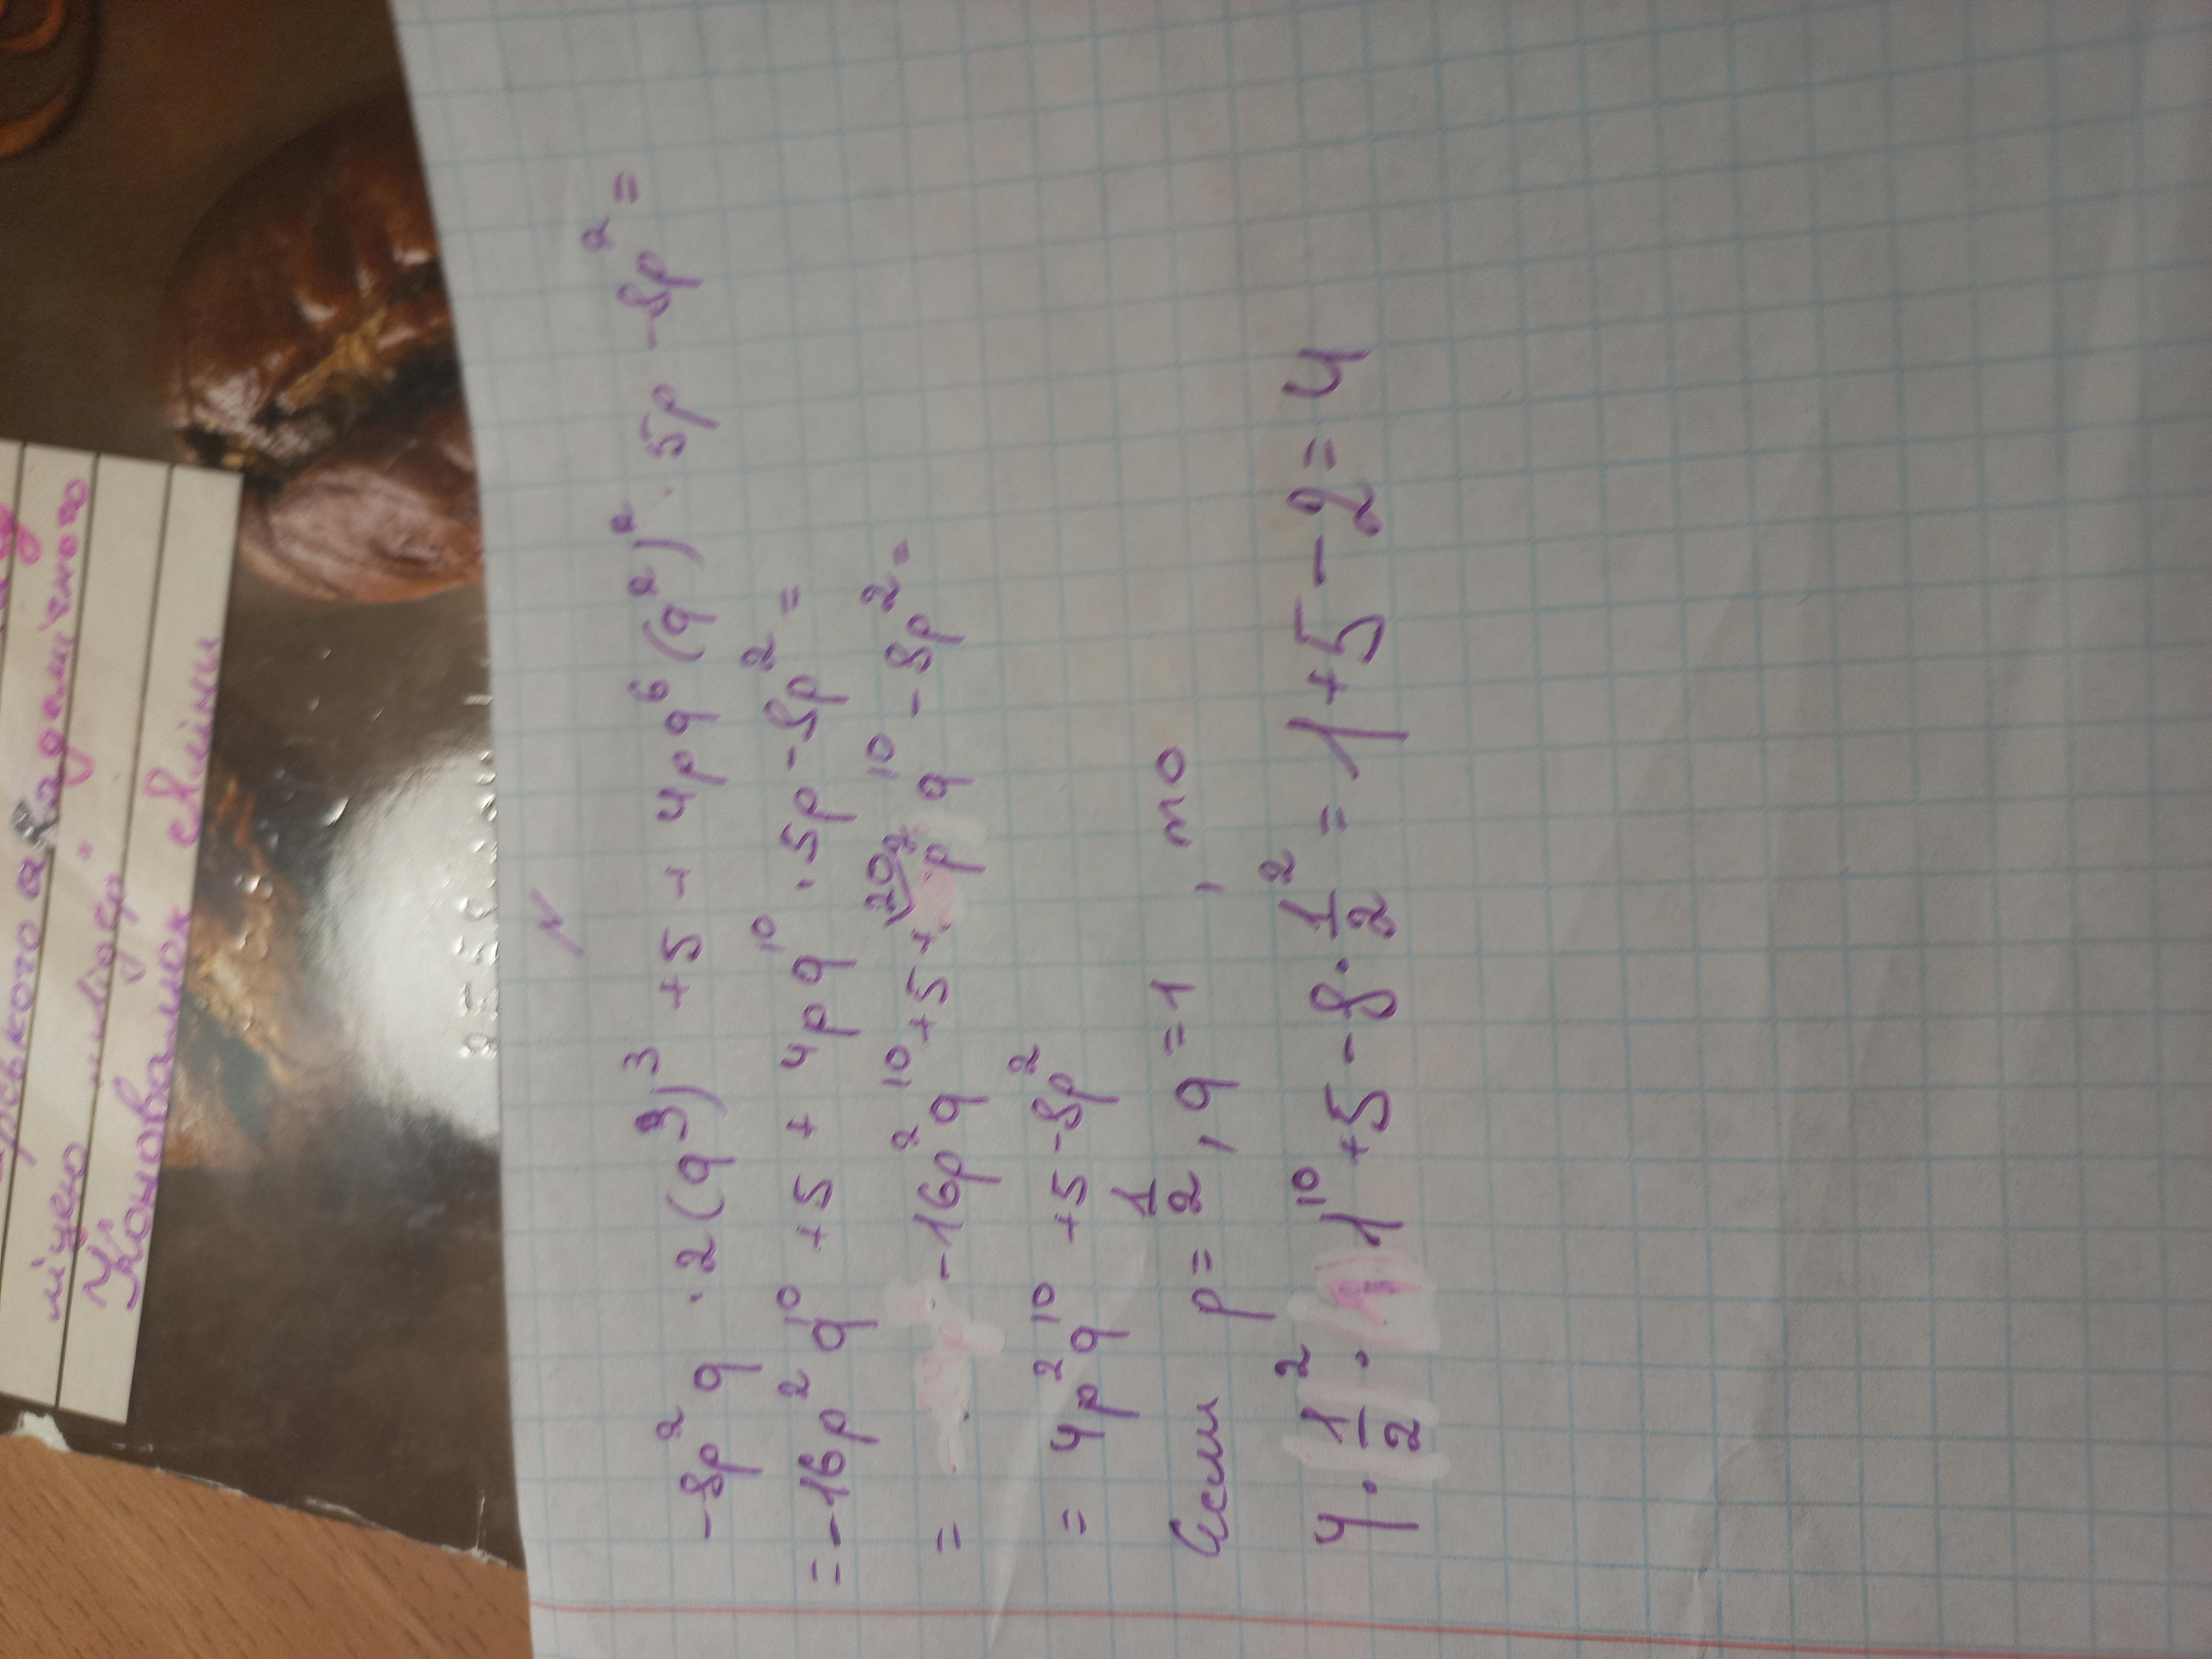 лицею "лідер"
Коновалюк Аліни
N
-8p² q · 2(q³)³ +5 + 4pq⁶(q²)² · 5p -8p² =
= -16p² q¹⁰ +5 + 4pq¹⁰ · 5p -8p² =
= -16p² q¹⁰ +5 + 20p² q¹⁰ -8p² =
= 4p² q¹⁰ +5 -8p²
Если p = 1/2, q = 1, то
4 · 1/2² · 1¹⁰ +5 - 8 · 1/2² = 1+5-2=4